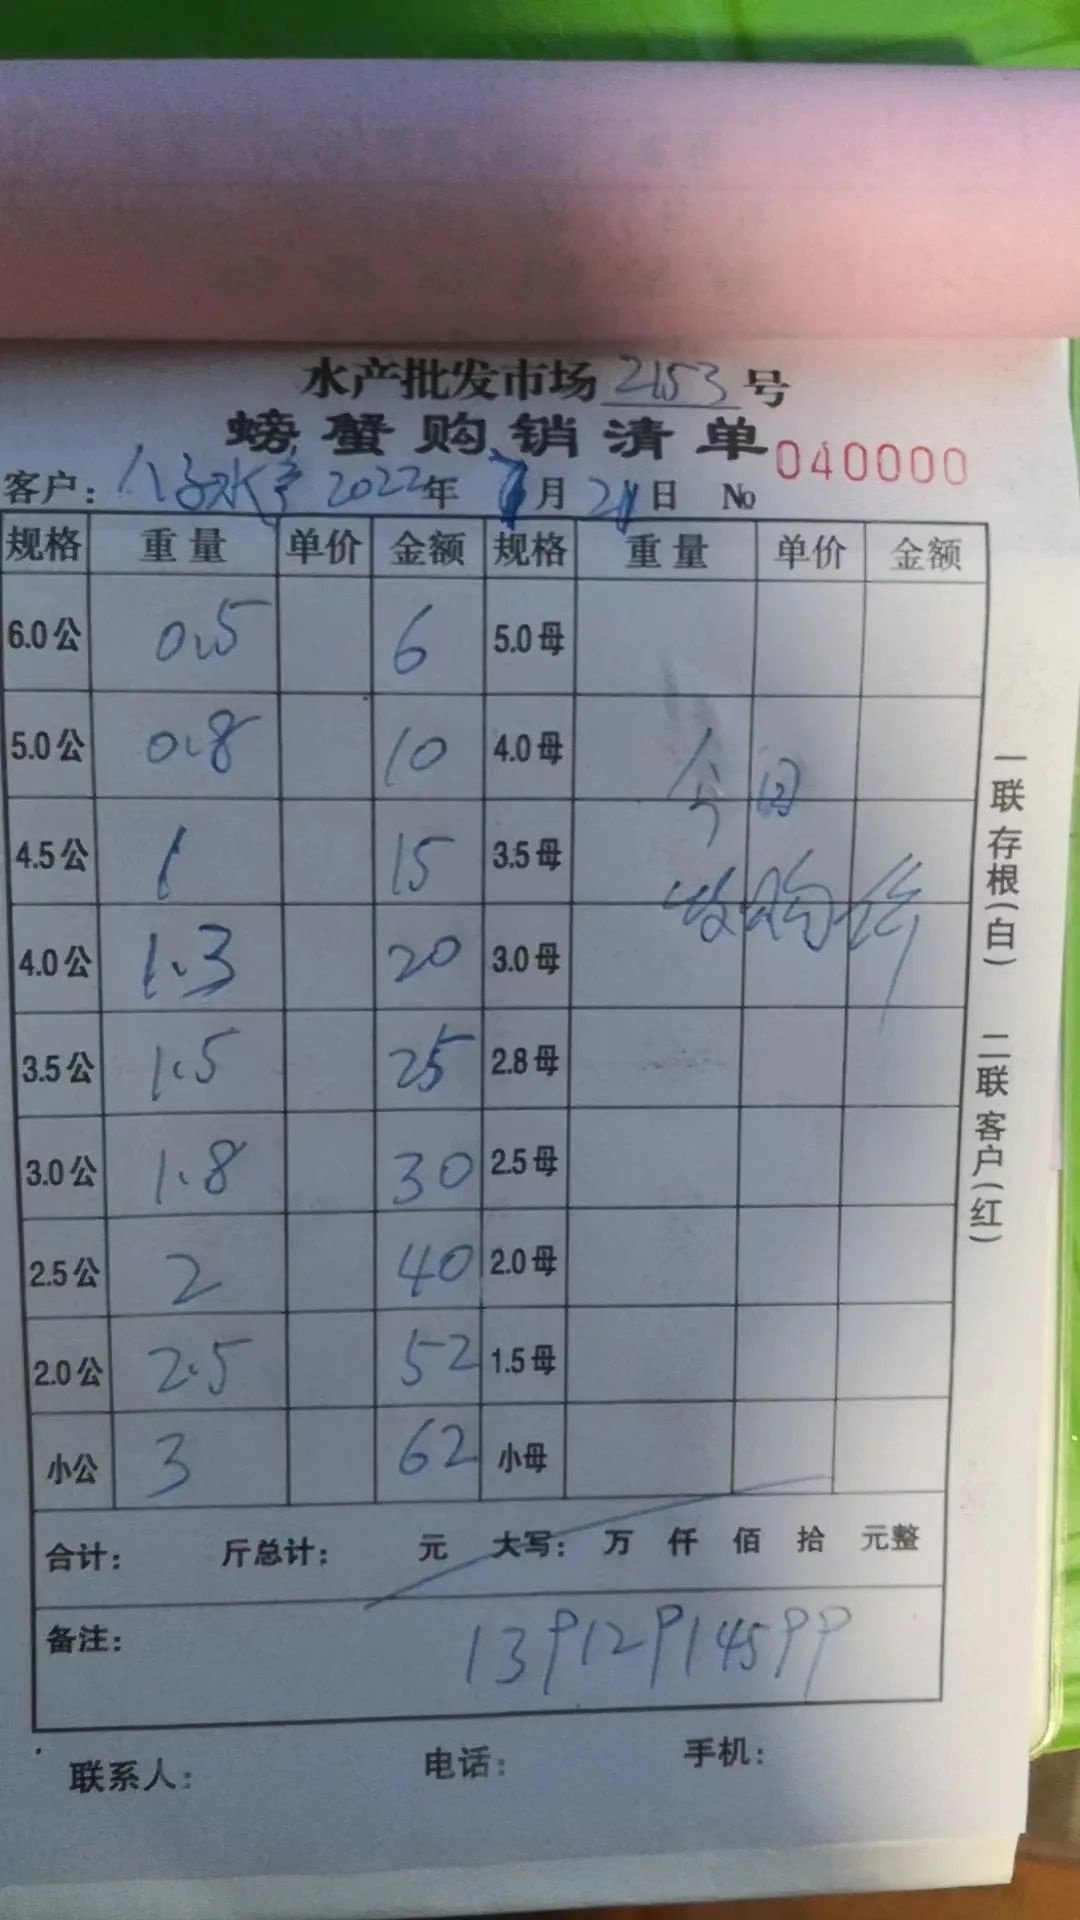 水产批发市场2153号
螃蟹购销清单
040000
客户：八子水产 2022年 月 21日 №
规格 重量 单价 金额 规格 重量 单价 金额
6.0公 0.5 6 5.0母
5.0公 0.8 10 4.0母
今日
4.5公 1 15 3.5母
收购价
4.0公 1.3 20 3.0母
3.5公 1.5 25 2.8母
3.0公 1.8 30 2.5母
2.5公 2 40 2.0母
2.0公 2.5 52 1.5母
小公 3 62 小母
合计： 斤总计： 元 大写： 万 仟 佰 拾 元整
备注： 13912914599
联系人： 电话： 手机：
一联存根(白) 二联客户(红)